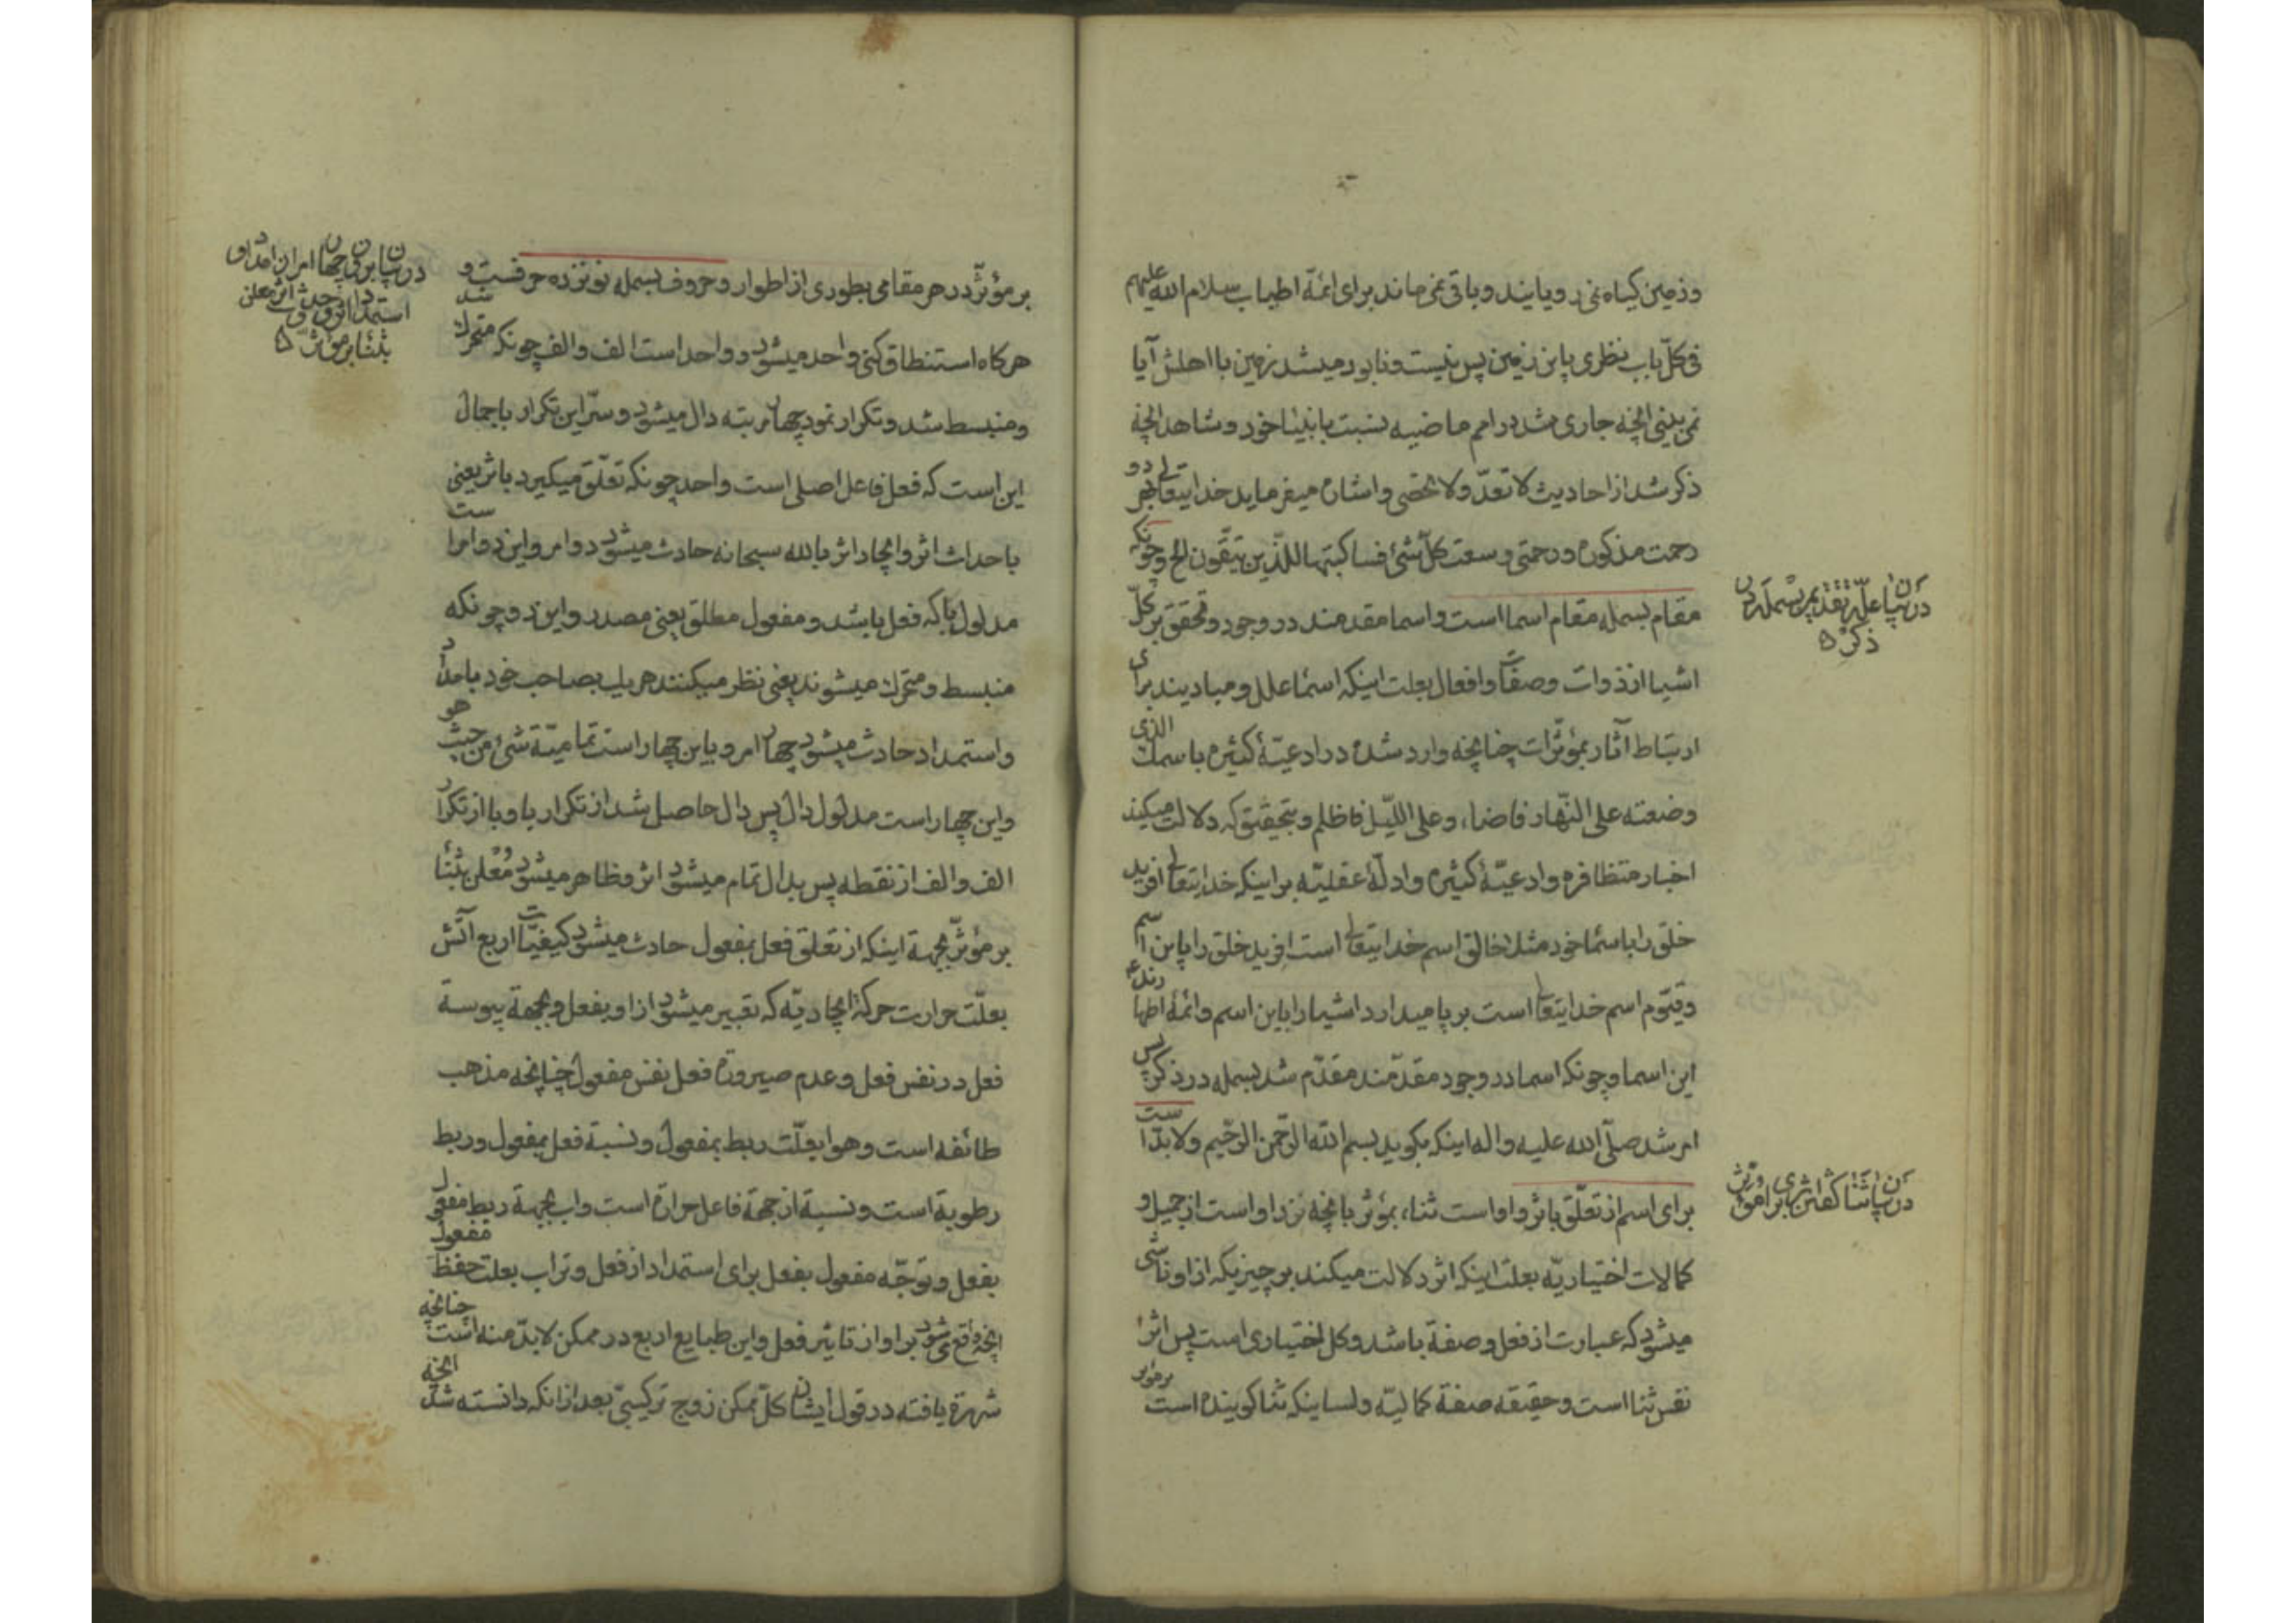 وزمین کیاه نمی رویانید و باقی نمی ماند برای ائمّهٔ اطیاب سلام الله علیهم
فی کلّ باب نظری باین زمین پس نیست و نابود میشد زمین با اهلش آیا
نمی بینی انچه جاری شد در امم ماضیه نسبت بانبیا خود و شاهد انچه
ذکر شد از احادیث لا تعدّ ولا تحصی و اشاره میفرماید خدایتعالی
رحمت مذکوره و رحمتی وسعت کلّ شئ فساکتبها للذین یتّقون الخ و چونکه
مقام بسمله مقام اسما است و اسما مقدمند در وجود و تحقق بر کلّ
اشیا از ذوات و صفات و افعال بعلت اینکه اسما علل و مبادیند برای
ارتباط آثار بمؤثّرات چنانچه وارد شده در ادعیّهٔ کثیره باسمك الذی
وضعته علی النّهار فاضاء وعلی اللّیل فاظلم و بتحقیق که دلالت میکند
اخبار متظافره و ادعیّهٔ کثیره و ادلّهٔ عقلیّه بر اینکه خدایتعالی افرید
خلق را باسما خود مثلا خالق اسم خدایتعالی است افرید خلق را باین اسم
و قیّوم اسم خدایتعالی است بر پا میدارد اشیا را باین اسم و ائمّهٔ اطهار
این اسما و چونکه اسما در وجود مقدّمند مقدّم شد بسمله در ذکر پس
امر شد صلّی الله علیه واله اینکه بکوید بسم الله الرّحمن الرّحیم ولا بدّ است
برای اسم از تعلّق باثر و او است ثناء بمؤثر بانچه نزد او است از جمیل و
کمالات اختیاریّه بعلت اینکه اثر دلالت میکند بر چیزیکه از او ناشی
میشود که عبارت از فعل و صفة باشد و کل اختیاری است پس اثر
نفس ثنا است و حقیقه صفة کمالیّه و لسا نیکه ثنا کوینده است بر مؤثر
در بیان علّة تقدیم بسمله در ذکر
در بیان ثنا کفتن اثر برای مؤثر
بر مؤثّر در هر مقامی بطوری از اطوار و حروف بسمله نونزده حرفست و
هرکاه استنطاق کنی واحد میشود و واحد است الف و الف چونکه متحرك شد
و منبسط شد و تکرار نمود چهار مرتبه دال میشود و سرّ این تکرار باجمال
این است که فعل فاعل اصلی است واحد چونکه تعلّق میکیرد باثر یعنی
باحداث اثر و ایجاد اثر بالله سبحانه حادث میشود دو امر و این دو امر است
مدلول با که فعل باشد و مفعول مطلق یعنی مصدر و این دو چونکه
منبسط و متحرك میشوند یعنی نظر میکنند هر یك بصاحب خود بامداد
و استمداد حادث میشود چهار امر و باین چهار است تمامیّة شئ من حیث هو
و این چهار است مدلول دال پس دال حاصل شد از تکرار با و با از تکرار
الف و الف از نقطه پس بدال تمام میشود اثر و ظاهر میشود و معلن بثنا
بر مؤثّر بجهة اینکه از تعلق فعل بمفعول حادث میشود کیفیّات اربع آتش
بعلّت حرارت حرکة ایجادیّه که تعبیر میشود از او بفعل و بجهة یبوسة
فعل در نفس فعل و عدم صیرورة فعل نفس مفعول چنانچه مذهب
طائفه است و هوا بعلّت ربط بمفعول و نسبة فعل بمفعول و ربط
رطوبة است و نسبة از جهة فاعل حرارة است و اب بجهة ربط مفعول
بفعل و توجّه مفعول بفعل برای استمداد از فعل و تراب بعلت حفظ مفعول
انچه واقع میشود بر او از تاثیر فعل و این طبایع اربع در ممکن لا بدّ منه است چنانچه
شهرة یافته در قول ایشان کلّ ممکن زوج ترکیبی بعد از انکه دانسته شد انچه